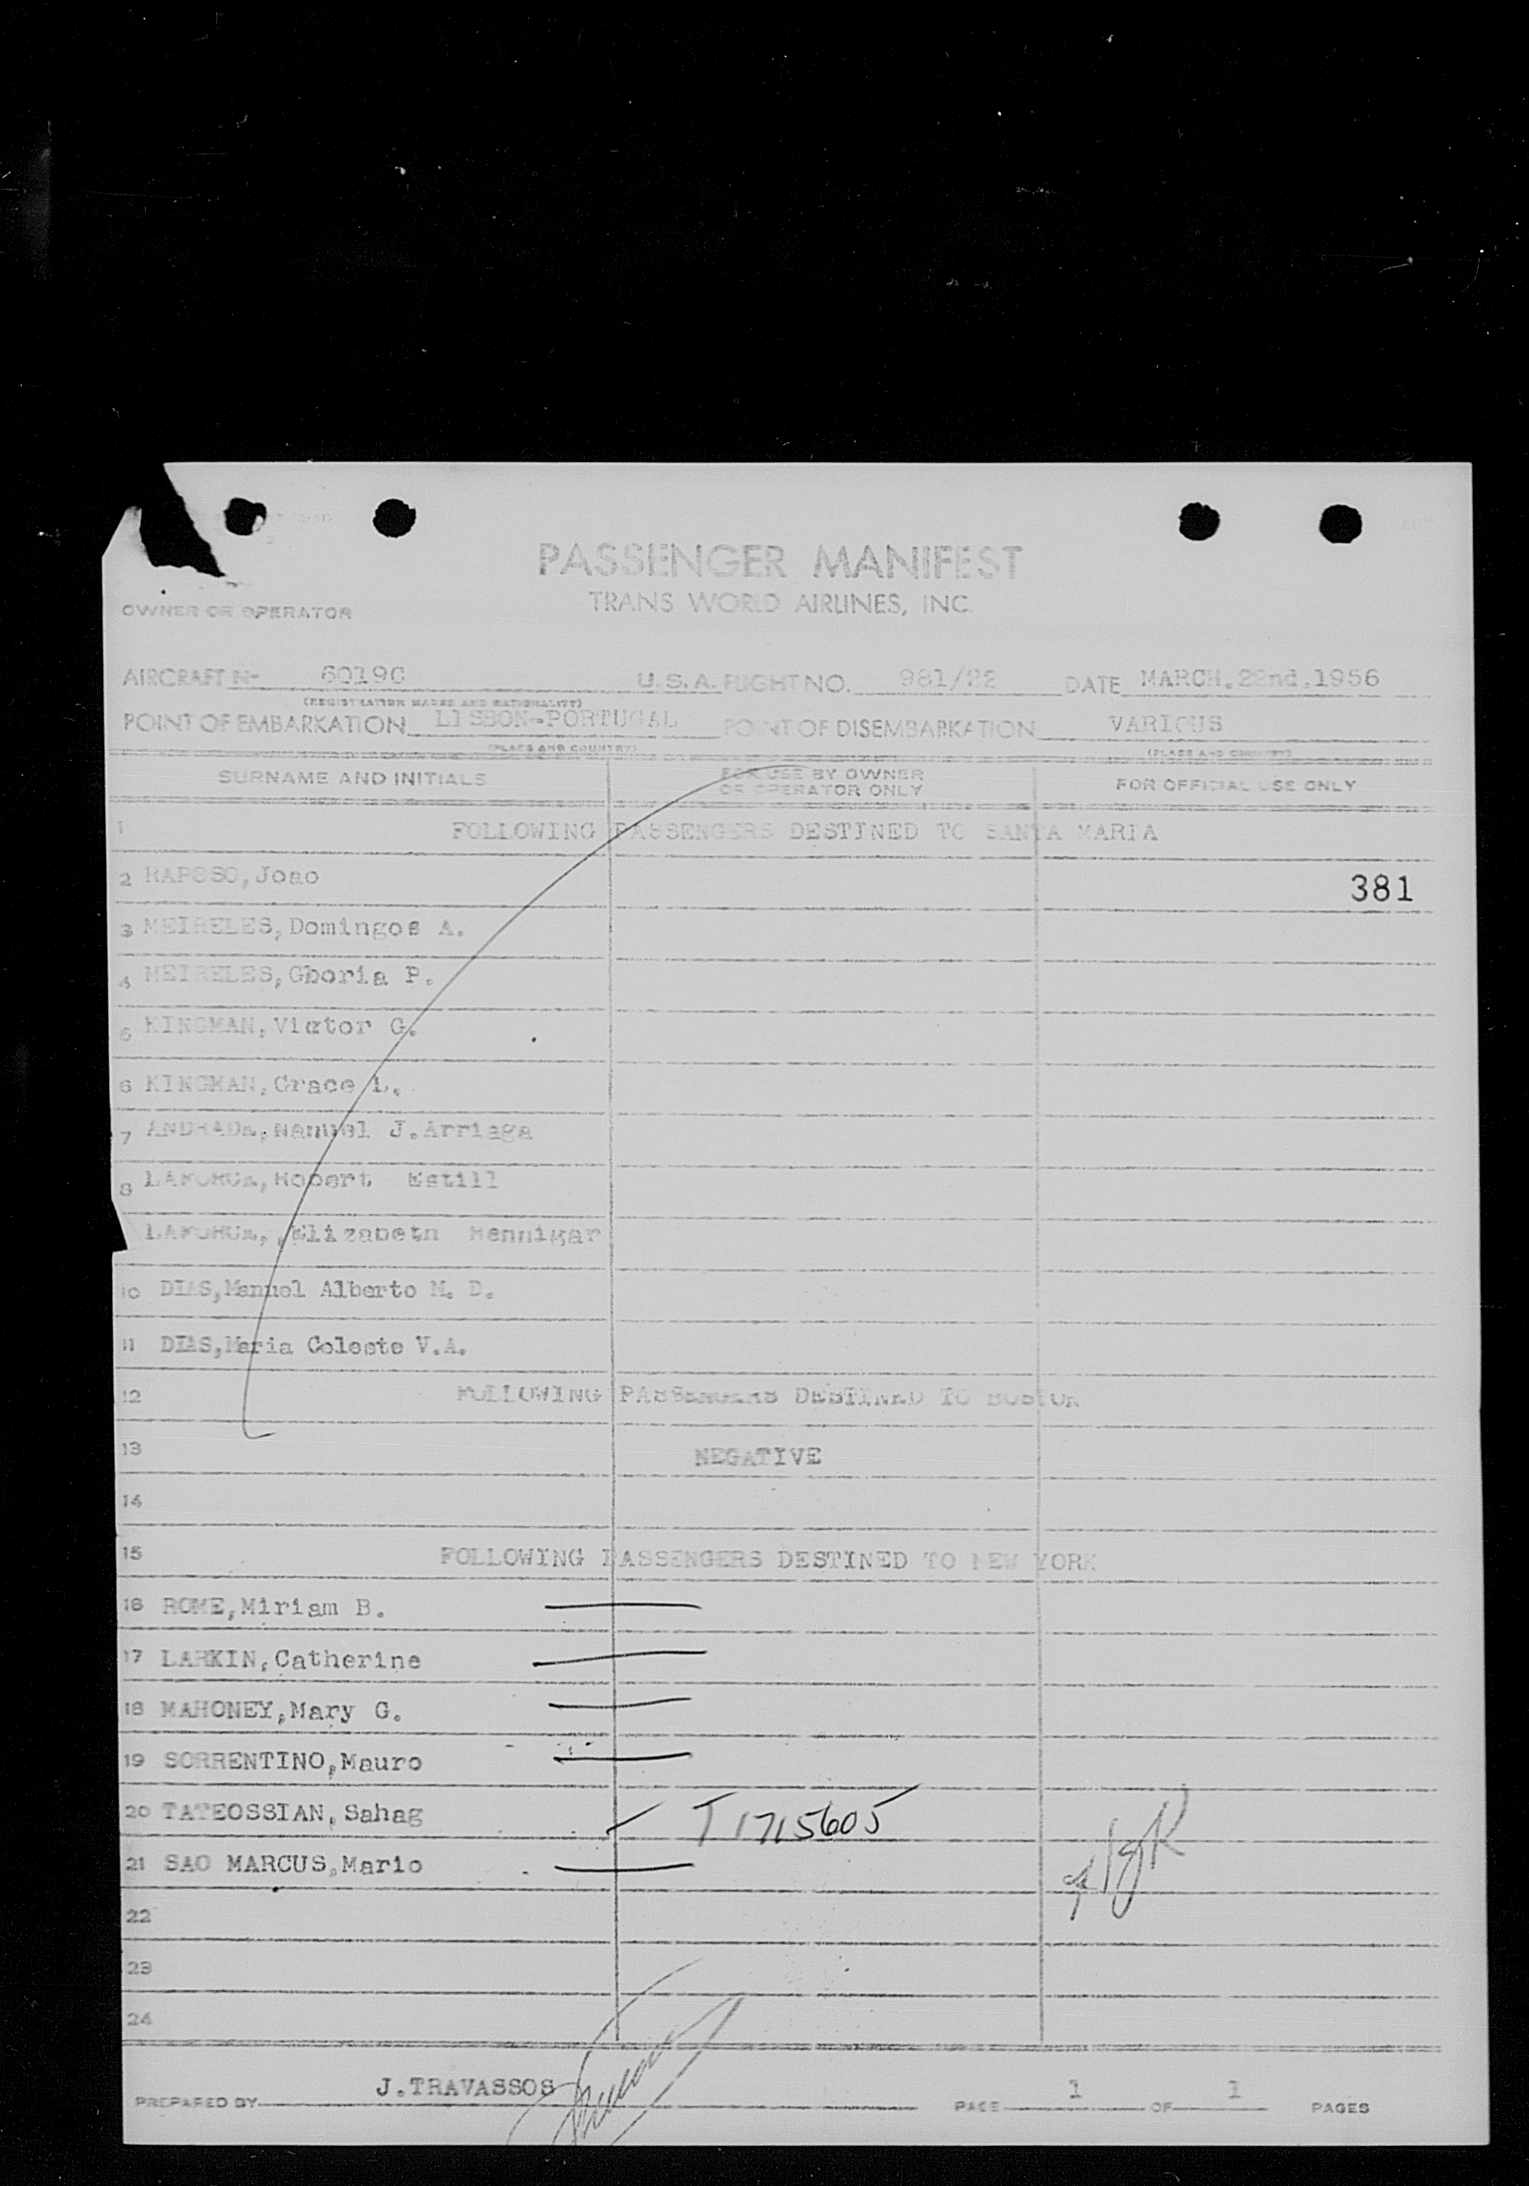 PASSENGER MANIFEST
TRANS WORLD AIRLINES, INC.
OWNER OR OPERATOR
AIRCRAFT Nº 6019C U.S.A. FLIGHT NO. 981/22 DATE MARCH.22nd.1956
(REGISTRATION MARKS AND NATIONALITY)
POINT OF EMBARKATION LISBON-PORTUGAL POINT OF DISEMBARKATION VARIOUS
(PLACE AND COUNTRY) (PLACE AND COUNTRY)
SURNAME AND INITIALS FOR USE BY OWNER OR OPERATOR ONLY FOR OFFICIAL USE ONLY
1 FOLLOWING PASSENGERS DESTINED TO SANTA MARIA
2 RAPOSO,Joao 381
3 MEIRELES,Domingos A.
4 MEIRELES,Gboria P.
5 KINGMAN,Victor G.
6 KINGMAN,Grace L.
7 ANDRADE,Manuel J.Arriaga
8 Robert Estill
Elizabeth Mennigar
10 DIAS,Manuel Alberto M. D.
11 DIAS,Maria Celeste V.A.
12 FOLLOWING PASSENGERS DESTINED TO BOSTON
13 NEGATIVE
14
15 FOLLOWING PASSENGERS DESTINED TO NEW YORK
16 ROME,Miriam B.
17 LARKIN,Catherine
18 MAHONEY,Mary G.
19 SORRENTINO,Mauro
20 TATEOSSIAN,Sahag T1715605
21 SAO MARCUS,Mario
22
23
24
PREPARED BY J.TRAVASSOS PAGE 1 OF 1 PAGES